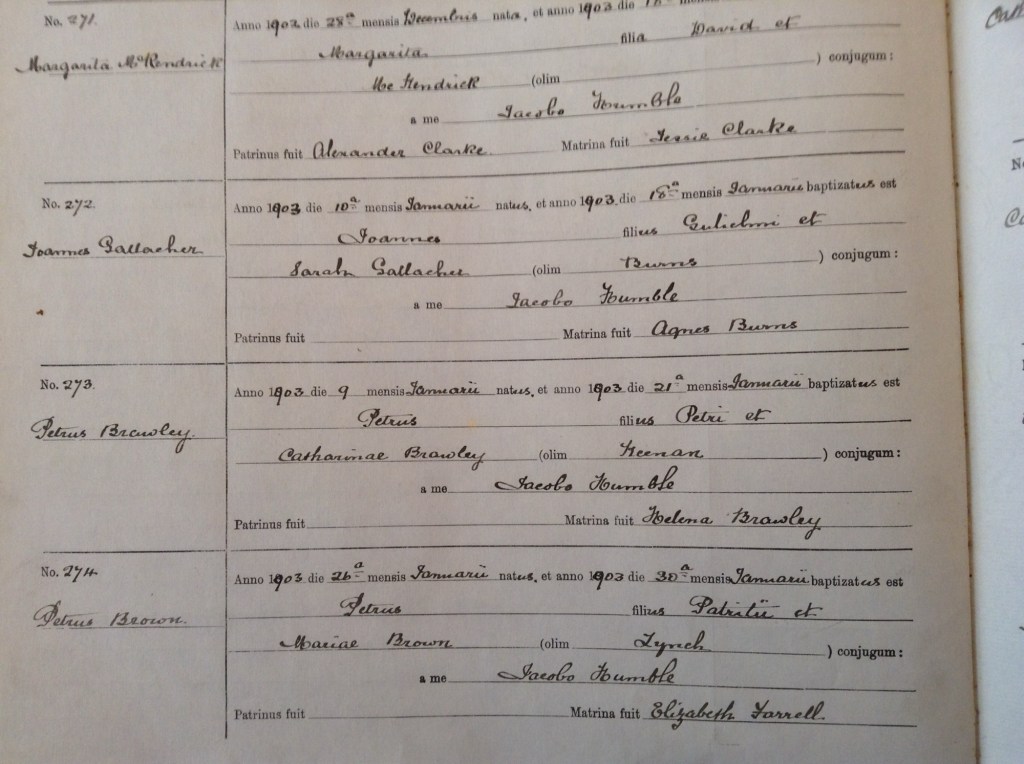 No. 271.
Margarita McKendrick
Anno 1902 die 28a mensis Decembris nata, et anno 1903 die
Margarita filia David et
Mc Kendrick (olim ) conjugum:
a me Jacobo Humble
Patrinus fuit Alexander Clarke. Matrina fuit Jessie Clarke
No. 272.
Joannes Gallacher
Anno 1903 die 10a mensis Januarii natus, et anno 1903 die 18a mensis Januarii baptizatus est
Joannes filius Gulielmi et
Sarah Gallacher (olim Burns ) conjugum:
a me Jacobo Humble
Patrinus fuit Matrina fuit Agnes Burns
No. 273.
Petrus Brawley.
Anno 1903 die 9 mensis Januarii natus, et anno 1903 die 21a mensis Januarii baptizatus est
Petrus filius Petri et
Catharinae Brawley (olim Keenan ) conjugum:
a me Jacobo Humble
Patrinus fuit Matrina fuit Helena Brawley
No. 274
Petrus Brown.
Anno 1903 die 26a mensis Januarii natus, et anno 1903 die 30a mensis Januarii baptizatus est
Petrus filius Patritii et
Mariae Brown (olim Lynch ) conjugum:
a me Jacobo Humble
Patrinus fuit Matrina fuit Elizabeth Farrell.